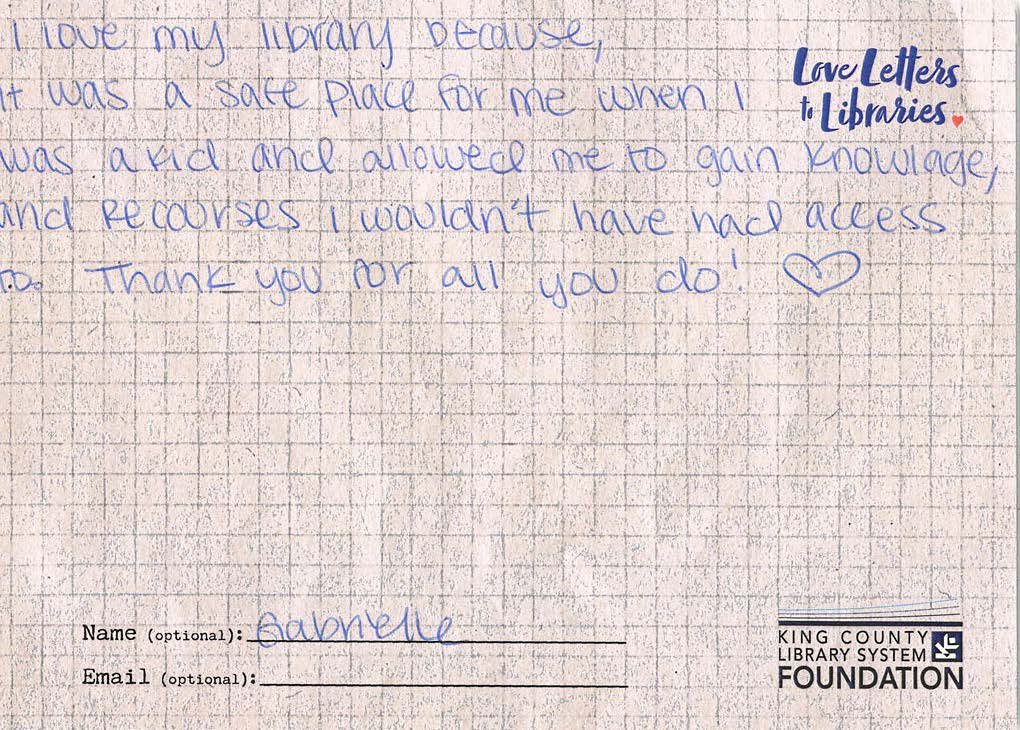 I love my library because,
it was a safe place for me when I
was a kid and allowed me to gain knowlage,
and recourses I wouldn't have had access
to. Thank you for all you do! ♡
Love Letters
to Libraries
Name (optional): Gabrielle
Email (optional):
KING COUNTY
LIBRARY SYSTEM
FOUNDATION